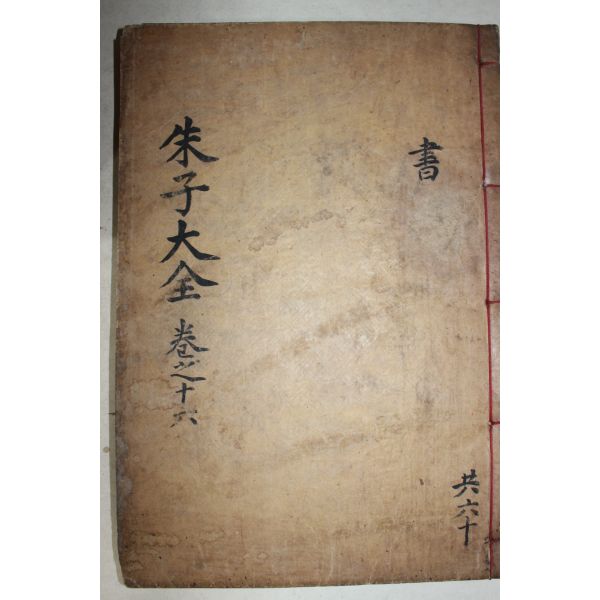 書
共六十
朱子大全
卷之十六